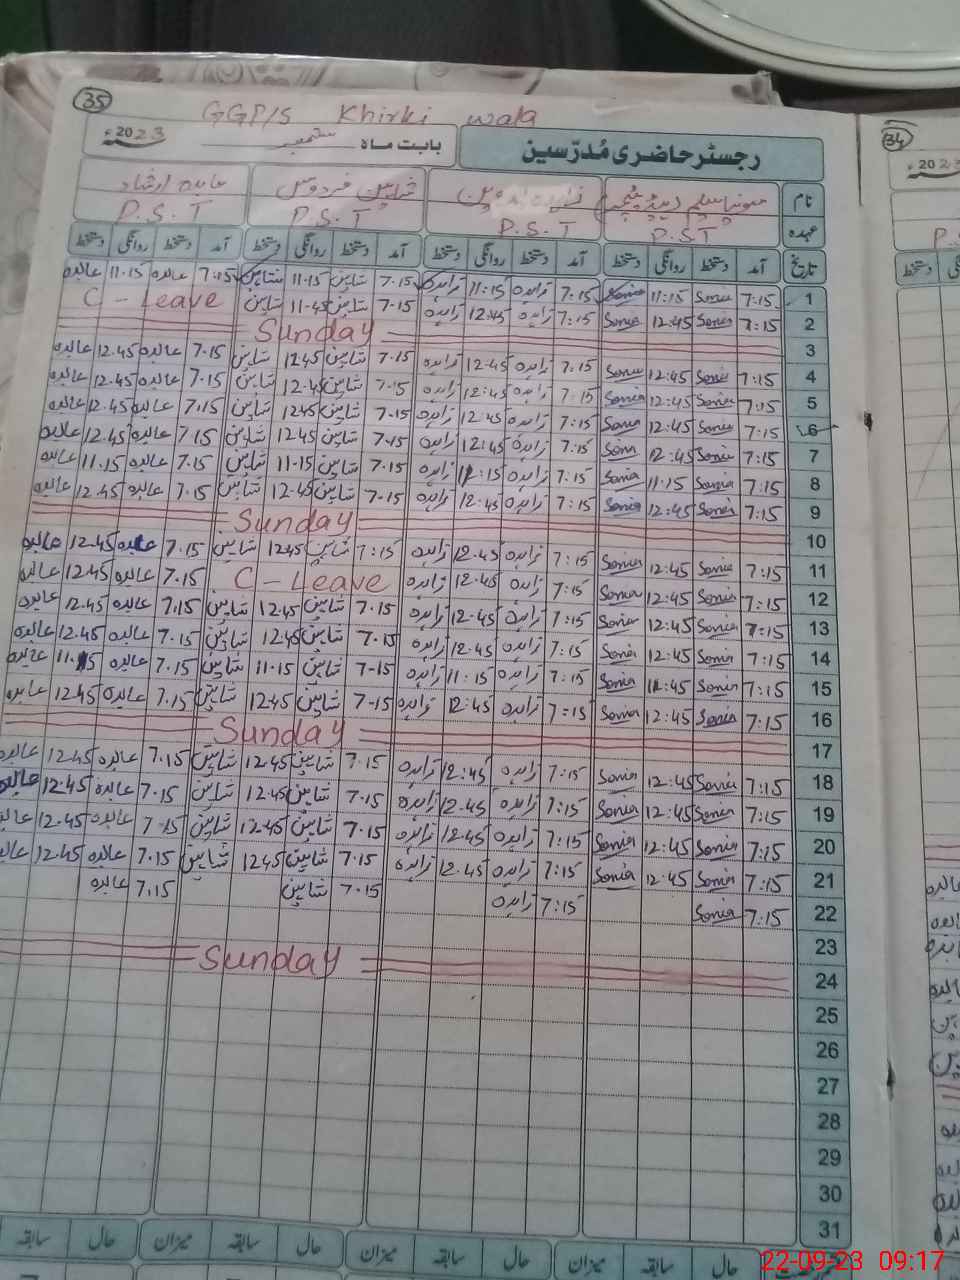 35
GGP/S Khirki wala
رجسٹر حاضری مُدرّسین بابت ماہ ستمبر 2023ء
34
2023
نام سونیا سلیم (ہیڈ ٹیچر) شاہین فردوس عابدہ ارشاد
عہدہ P.S.T P.S.T P.S.T P.S.T
تاریخ آمد دستخط روانگی دستخط آمد دستخط روانگی دستخط آمد دستخط روانگی دستخط آمد دستخط روانگی دستخط
1 7:15 Sonia 11:15 Sonia 7:15 زاہدہ 11:15 زاہدہ 7.15 شاہین 11.15 شاہین 7.15 عابدہ 11.15 عابدہ
2 7:15 Sonia 12:45 Sonia 7:15 زاہدہ 12:45 زاہدہ 7.15 شاہین 11.45 شاہین C-Leave
3 Sunday
4 7:15 Sonia 12:45 Sonia 7:15 زاہدہ 12:45 زاہدہ 7.15 شاہین 12.45 شاہین 7.15 عابدہ 12.45 عابدہ
5 7:15 Sonia 12:45 Sonia 7:15 زاہدہ 12:45 زاہدہ 7.15 شاہین 12.45 شاہین 7.15 عابدہ 12.45 عابدہ
6 7:15 Sonia 12:45 Sonia 7:15 زاہدہ 12:45 زاہدہ 7.15 شاہین 12.45 شاہین 7.15 عابدہ 12.45 عابدہ
7 7:15 Sonia 12:45 Sonia 7:15 زاہدہ 12:45 زاہدہ 7.15 شاہین 12.45 شاہین 7.15 عابدہ 12.45 عابدہ
8 7:15 Sonia 11:15 Sonia 7:15 زاہدہ 11:15 زاہدہ 7.15 شاہین 11.15 شاہین 7.15 عابدہ 11.15 عابدہ
9 7:15 Sonia 12:45 Sonia 7:15 زاہدہ 12:45 زاہدہ 7.15 شاہین 12.45 شاہین 7.15 عابدہ 12.45 عابدہ
10 Sunday
11 7:15 Sonia 12:45 Sonia 7:15 زاہدہ 12.45 زاہدہ 7:15 شاہین 12.45 شاہین 7.15 عابدہ 12.45 عابدہ
12 7:15 Sonia 12:45 Sonia 7:15 زاہدہ 12.45 زاہدہ C-Leave 7.15 عابدہ 12.45 عابدہ
13 7:15 Sonia 12:45 Sonia 7:15 زاہدہ 12.45 زاہدہ 7.15 شاہین 12.45 شاہین 7.15 عابدہ 12.45 عابدہ
14 7:15 Sonia 12:45 Sonia 7:15 زاہدہ 12.45 زاہدہ 7.15 شاہین 12.45 شاہین 7.15 عابدہ 12.45 عابدہ
15 7:15 Sonia 11:45 Sonia 7:15 زاہدہ 11:15 زاہدہ 7-15 شاہین 11.15 شاہین 7.15 عابدہ 11.15 عابدہ
16 7:15 Sonia 12:45 Sonia 7:15 زاہدہ 12:45 زاہدہ 7-15 شاہین 12.45 شاہین 7.15 عابدہ 12.45 عابدہ
17 Sunday
18 7:15 Sonia 12:45 Sonia 7:15 زاہدہ 12:45 زاہدہ 7.15 شاہین 12.45 شاہین 7.15 عابدہ 12.45 عابدہ
19 7:15 Sonia 12:45 Sonia 7:15 زاہدہ 12.45 زاہدہ 7.15 شاہین 12.45 شاہین 7.15 عابدہ 12.45 عابدہ
20 7:15 Sonia 12:45 Sonia 7:15 زاہدہ 12.45 زاہدہ 7.15 شاہین 12.45 شاہین 7-15 عابدہ 12.45 عابدہ
21 7:15 Sonia 12:45 Sonia 7:15 زاہدہ 12.45 زاہدہ 7.15 شاہین 12.45 شاہین 7.15 عابدہ 12.45 عابدہ
22 7:15 Sonia 7:15 زاہدہ 7.15 شاہین 7.15 عابدہ
23
24 Sunday
25
26
27
28
29
30
31
حال سابقہ میزان حال سابقہ میزان حال سابقہ میزان حال سابقہ
22-09-23 09:17